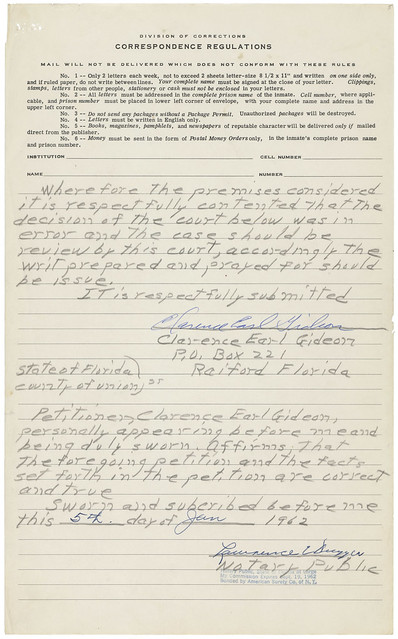 DIVISION OF CORRECTIONS
CORRESPONDENCE REGULATIONS
MAIL WILL NOT BE DELIVERED WHICH DOES NOT CONFORM WITH THESE RULES
No. 1 -- Only 2 letters each week, not to exceed 2 sheets letter-size 8 1/2 x 11" and written on one side only,
and if ruled paper, do not write between lines. Your complete name must be signed at the close of your letter. Clippings,
stamps, letters from other people, stationery or cash must not be enclosed in your letters.
No. 2 -- All letters must be addressed in the complete prison name of the inmate. Cell number, where appli-
cable, and prison number must be placed in lower left corner of envelope, with your complete name and address in the
upper left corner.
No. 3 -- Do not send any packages without a Package Permit. Unauthorized packages will be destroyed.
No. 4 -- Letters must be written in English only.
No. 5 -- Books, magazines, pamphlets, and newspapers of reputable character will be delivered only if mailed
direct from the publisher.
No. 6 -- Money must be sent in the form of Postal Money Orders only, in the inmate's complete prison name
and prison number.
INSTITUTION CELL NUMBER
NAME NUMBER
Wherefore the premises considered
it is respectfully contented that the
decision of the court below was in
error and the case should be
review by this court, accordingly the
writ prepared and prayed for should
be issue.
It is respectfully submitted
Clarence Earl Gideon
Clarence Earl Gideon
P.O. Box 221
Raiford Florida
state of Florida)
county of union) ss
Petitioner, Clarence Earl Gideon,
personally appearing before me and
being duly sworn. Affirms, that
the foregoing petition and the facts
set forth in the petition are correct
and true
Sworn and subcribed before me
this 5th day of Jan 1962
Notary Public
Notary Public, State of Florida at large
My Commission Expires Sept. 19, 1962
Bonded by American Surety Co. of N. Y.